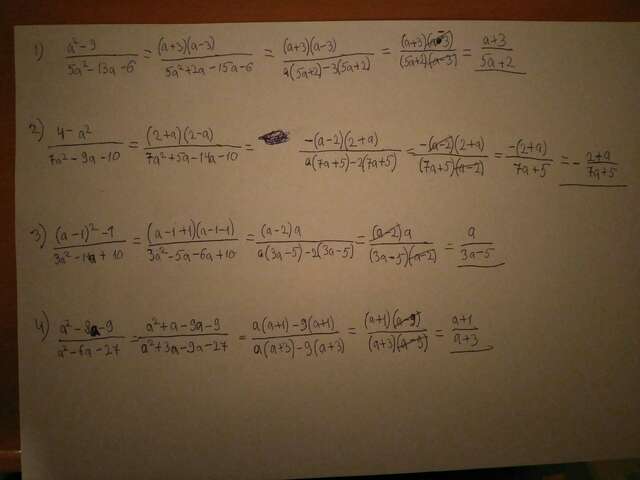 1) (a²-9)/(5a²-13a-6) = ((a+3)(a-3))/(5a²+2a-15a-6) = ((a+3)(a-3))/(a(5a+2)-3(5a+2)) = ((a+3)(a-3))/((5a+2)(a-3)) = (a+3)/(5a+2)
2) (4-a²)/(7a²-9a-10) = ((2+a)(2-a))/(7a²+5a-14a-10) = (-(a-2)(2+a))/(a(7a+5)-2(7a+5)) = (-(a-2)(2+a))/((7a+5)(a-2)) = (-(2+a))/(7a+5) = -(2+a)/(7a+5)
3) ((a-1)²-1)/(3a²-11a+10) = ((a-1+1)(a-1-1))/(3a²-5a-6a+10) = ((a-2)a)/(a(3a-5)-2(3a-5)) = ((a-2)a)/((3a-5)(a-2)) = a/(3a-5)
4) (a²-8a-9)/(a²-6a-27) = (a²+a-9a-9)/(a²+3a-9a-27) = (a(a+1)-9(a+1))/(a(a+3)-9(a+3)) = ((a+1)(a-9))/((a+3)(a-9)) = (a+1)/(a+3)